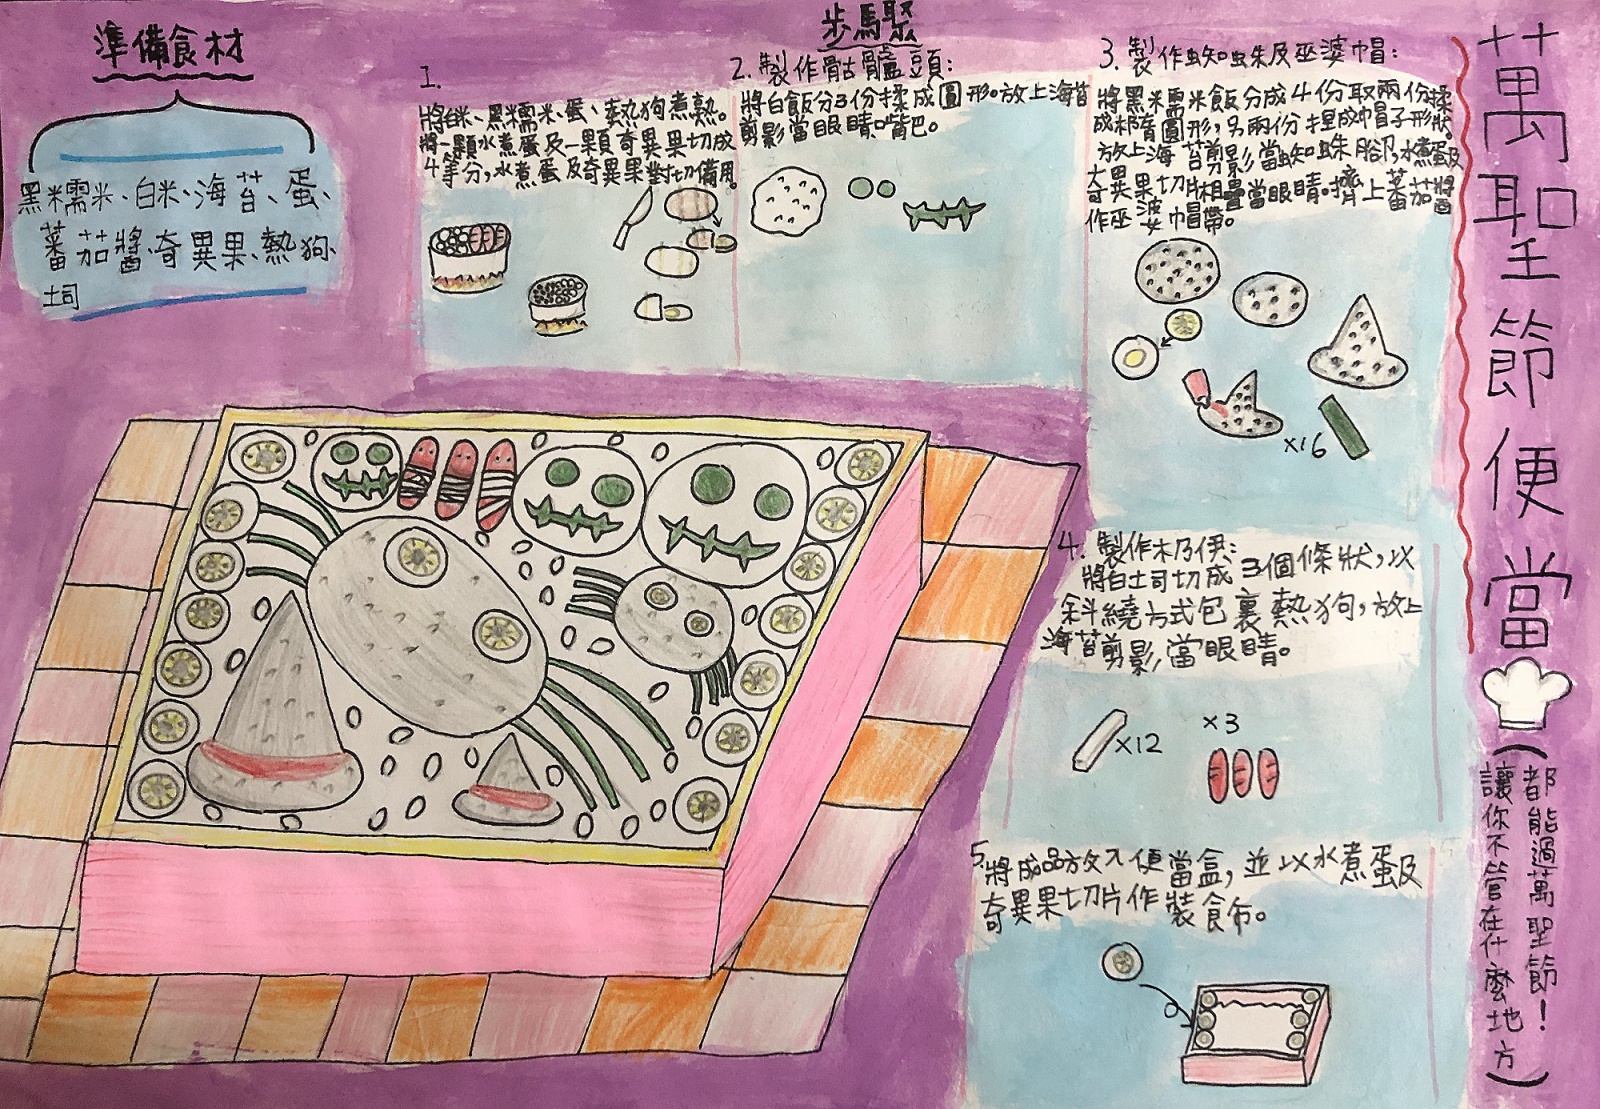 萬聖節便當
(讓你不管在什麼地方
都能過萬聖節!)
準備食材
黑糯米、白米、海苔、蛋、
蕃茄醬、奇異果、熱狗、
土司
步驟
1.
將白米、黑糯米、蛋、熱狗煮熟。
將一顆水煮蛋及一顆奇異果切成
4等分,水煮蛋及奇異果對切備用。
2.製作骷髏頭:
將白飯分3份揉成圓形。放上海苔
剪影當眼睛、嘴巴。
3.製作蜘蛛及巫婆帽:
將黑糯米飯分成4份取兩份揉
成橢圓形,另兩份捏成帽子形狀。
放上海苔剪影當蜘蛛腳,水煮蛋及
奇異果切片相疊當眼睛。擠上蕃茄醬
作巫婆帽帶。
×16
4.製作木乃伊:
將白土司切成3個條狀,以
斜繞方式包裹熱狗,放上
海苔剪影,當眼睛。
×12
×3
5.將成品放入便當盒,並以水煮蛋及
奇異果切片作裝飾。